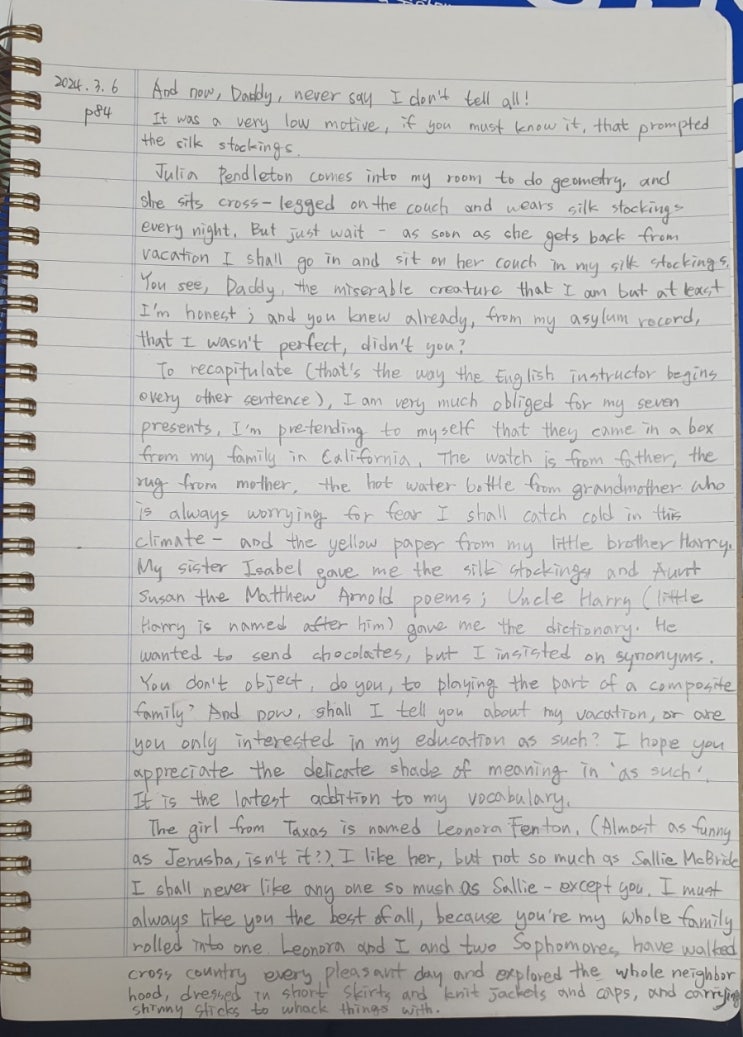 2024.3.6
p84
And now, Daddy, never say I don't tell all!
It was a very low motive, if you must know it, that prompted
the silk stockings.
Julia Pendleton comes into my room to do geometry, and
she sits cross-legged on the couch and wears silk stockings
every night. But just wait - as soon as she gets back from
vacation I shall go in and sit on her couch in my silk stockings.
You see, Daddy, the miserable creature that I am but at least
I'm honest; and you knew already, from my asylum record,
that I wasn't perfect, didn't you?
To recapitulate (that's the way the English instructor begins
every other sentence), I am very much obliged for my seven
presents. I'm pretending to myself that they came in a box
from my family in California. The watch is from father, the
rug from mother, the hot water bottle from grandmother who
is always worrying for fear I shall catch cold in this
climate - and the yellow paper from my little brother Harry.
My sister Isabel gave me the silk stockings and Aunt
Susan the Matthew Arnold poems; Uncle Harry (little
Harry is named after him) gave me the dictionary. He
wanted to send chocolates, but I insisted on synonyms.
You don't object, do you, to playing the part of a composite
family? And now, shall I tell you about my vacation, or are
you only interested in my education as such? I hope you
appreciate the delicate shade of meaning in 'as such'.
It is the latest addition to my vocabulary.
The girl from Taxas is named Leonora Fenton. (Almost as funny
as Jerusha, isn't it?) I like her, but not so much as Sallie McBride
I shall never like any one so mush as Sallie - except you. I must
always like you the best of all, because you're my whole family
rolled into one. Leonora and I and two Sophomores have walked
cross country every pleasant day and explored the whole neighbor
hood, dressed in short skirts and knit jackets and caps, and carrying
shinny sticks to whack things with.